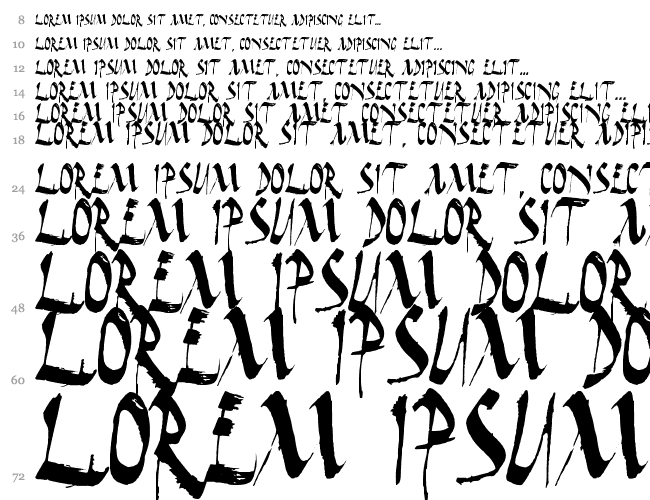 8 LOREM IPSUM DOLOR SIT AMET, CONSECTETUER ADIPISCING ELIT...
10 LOREM IPSUM DOLOR SIT AMET, CONSECTETUER ADIPISCING ELIT...
12 LOREM IPSUM DOLOR SIT AMET, CONSECTETUER ADIPISCING ELIT...
14 LOREM IPSUM DOLOR SIT AMET, CONSECTETUER ADIPISCING ELIT...
16 LOREM IPSUM DOLOR SIT AMET, CONSECTETUER ADIPISCING ELI
18 LOREM IPSUM DOLOR SIT AMET, CONSECTETUER ADIPI
24 LOREM IPSUM DOLOR SIT AMET, CONSECT
36 LOREM IPSUM DOLOR SIT A
48 LOREM IPSUM DOLOR
60 LOREM IPSUM DO
72 LOREM IPSUM